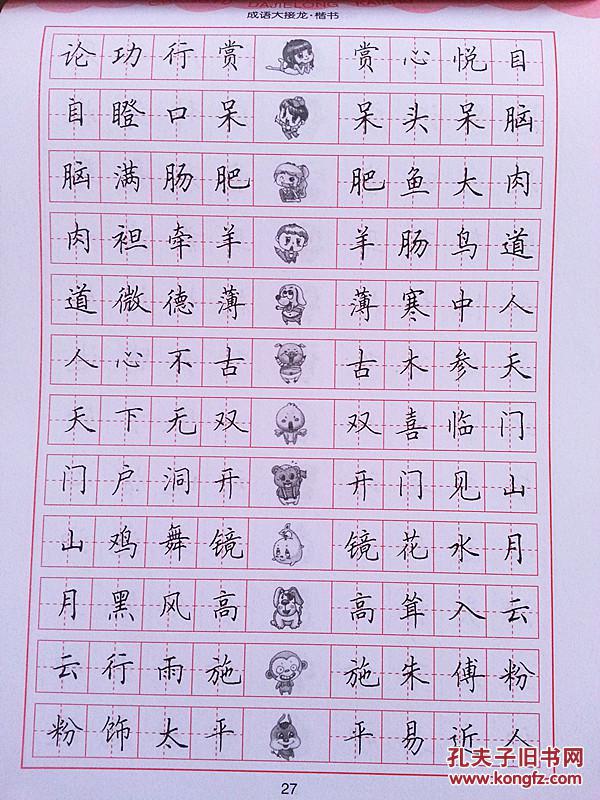 DAJIELONG
成语大接龙·楷书
论功行赏 赏心悦目
目瞪口呆 呆头呆脑
脑满肠肥 肥鱼大肉
肉袒牵羊 羊肠鸟道
道微德薄 薄寒中人
人心不古 古木参天
天下无双 双喜临门
门户洞开 开门见山
山鸡舞镜 镜花水月
月黑风高 高耸入云
云行雨施 施朱傅粉
粉饰太平 平易近人
27
孔夫子旧书网
www.kongfz.com